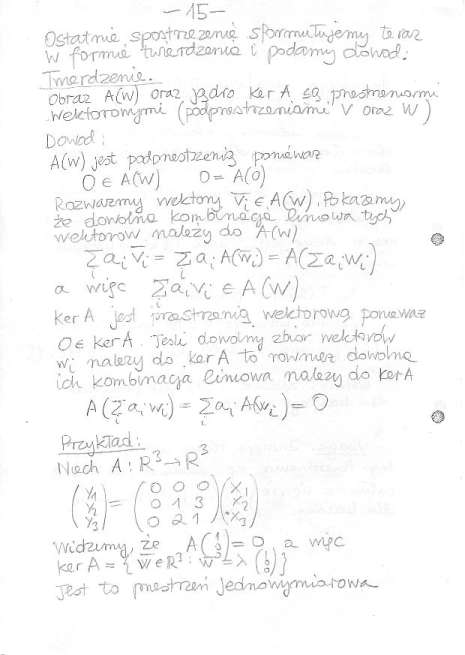 -15-
Ostatnie spostrzeżenie sformułujemy teraz
w formie twierdzenia i podamy dowód.
Twierdzenie.
Obraz A(W) oraz jądro Ker A są przestrzeniami
wektorowymi (podprzestrzeniami V oraz W)
Dowód:
A(W) jest podprzestrzenią ponieważ
0 ∈ A(W) 0 = A(0)
Rozważmy wektory v̄ᵢ ∈ A(W). Pokażemy,
że dowolna kombinacja liniowa tych
wektorów należy do A(W)
∑ᵢ aᵢ v̄ᵢ = ∑ᵢ aᵢ A(w̄ᵢ) = A(∑ aᵢ wᵢ)
a więc ∑ᵢ aᵢ vᵢ ∈ A(W)
Ker A jest przestrzenią wektorową ponieważ
0 ∈ Ker A. Jeśli dowolny zbiór wektorów
wᵢ należy do Ker A to również dowolna
ich kombinacja liniowa należy do Ker A
A(∑ᵢ aᵢ wᵢ) = ∑ᵢ aᵢ A(wᵢ) = 0
Przykład:
Niech A : R³ → R³
(y₁ y₂ y₃) = (0 0 0
0 1 3
0 2 1) (x₁ x₂ x₃)
Widzimy, że A(1 0 0) = 0 a więc
Ker A = { w̄ ∈ R³ : w̄ = λ (1 0 0) }
Jest to przestrzeń jednowymiarowa